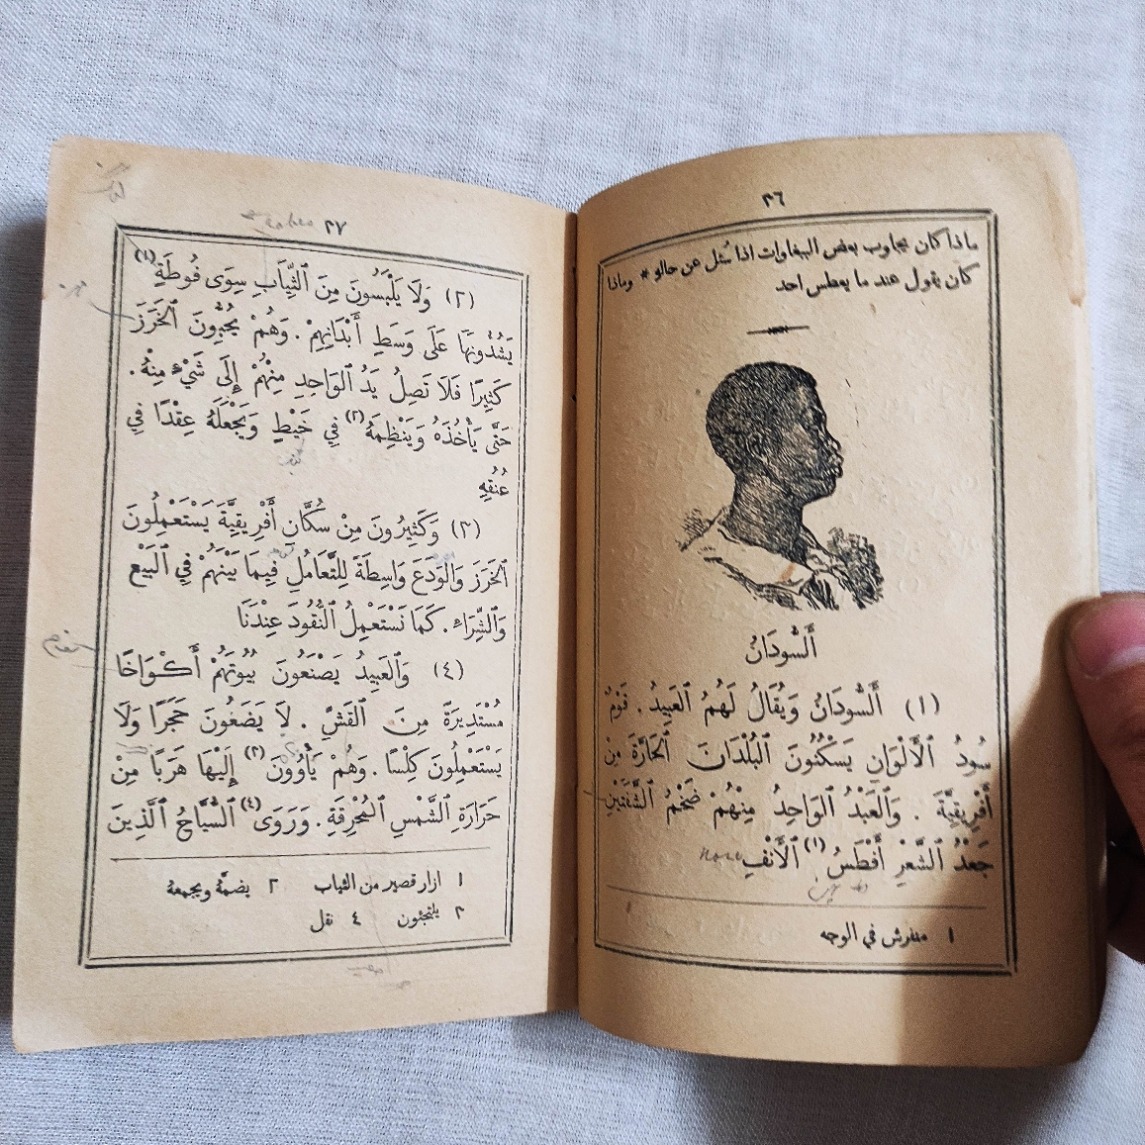 ٣٦
ماذا كان يجاوب بعض الببغاوات اذا سُئل عن حالهِ * وماذا
كان يقول عند ما يعطس احد
أَلسُّودَانُ
(١) أَلسُّودَانُ وَيُقَالُ لَهُمُ ٱلعَبِيدُ. قَوْمٌ
سُودُ ٱلأَلْوَانِ يَسْكُنُونَ ٱلبُلْدَانَ ٱلحَارَّةَ مِنْ
أَفْرِيقِيَّةَ. وَٱلعَبْدُ ٱلوَاحِدُ مِنْهُمْ ضَخْمُ ٱلشَّفَتَيْنِ
جَعْدُ ٱلشَّعْرِ أَفْطَسُ (١) ٱلأَنْفِ
nose
١ منفرش في الوجه
٣٧
(٢) وَلَا يَلْبَسُونَ مِنَ ٱلثِّيَابِ سِوَى فُوطَةٍ (١)
يَشُدُّونَهَا عَلَى وَسَطِ أَبْدَانِهِمْ. وَهُمْ يُحِبُّونَ ٱلخَرَزَ
كَثِيرًا فَلَا تَصِلُ يَدُ ٱلوَاحِدِ مِنْهُمْ إِلَى شَيْءٍ مِنْهُ.
حَتَّى يَأْخُذَهُ وَيَنْظِمَهُ (٢) فِي خَيْطٍ وَيَجْعَلَهُ عِقْدًا فِي
عُنُقِهِ
(٣) وَكَثِيرُونَ مِنْ سُكَّانِ أَفْرِيقِيَّةَ يَسْتَعْمِلُونَ
ٱلخَرَزَ وَٱلوَدَعَ وَاسِطَةً لِلتَّعَامُلِ فِيمَا بَيْنَهُمْ فِي ٱلبَيْعِ
وَٱلشِّرَاءِ. كَمَا نَسْتَعْمِلُ ٱلنُّقُودَ عِنْدَنَا
(٤) وَٱلعَبِيدُ يَصْنَعُونَ بُيُوتَهُمْ أَكْوَاخًا
مُسْتَدِيرَةً مِنَ ٱلقَشِّ. لَا يَضَعُونَ حَجَرًا وَلَا
يَسْتَعْمِلُونَ كِلْسًا. وَهُمْ يَأْوُونَ (٣) إِلَيْهَا هَرَبًا مِنْ
حَرَارَةِ ٱلشَّمْسِ ٱلمُحْرِقَةِ. وَرَوَى (٤) ٱلسُّيَّاحُ ٱلَّذِينَ
١ ازار قصير من الثياب ٢ يضمّهُ ويجمعهُ
٣ يلتجئون ٤ نقل